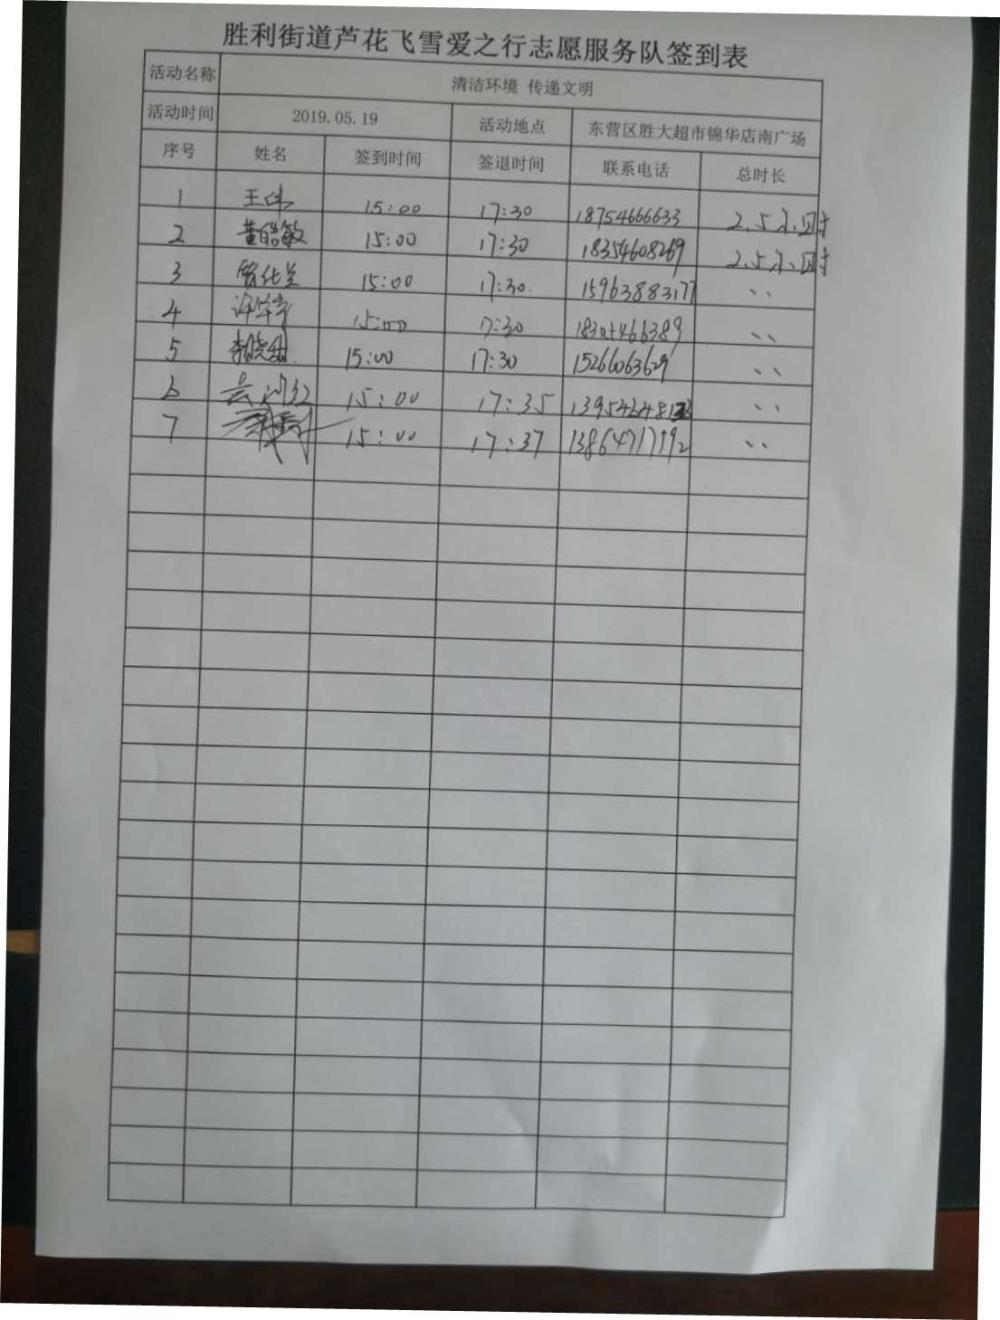 胜利街道芦花飞雪爱之行志愿服务队签到表
活动名称 清洁环境 传递文明
活动时间 2019.05.19 活动地点 东营区胜大超市锦华店南广场
序号 姓名 签到时间 签退时间 联系电话 总时长
1 王伟 15:00 17:30 18754666633 2.5小时
2 董皓敏 15:00 17:30 18354608269 2.5小时
3 15:00 17:30. 15963883177 、、
4 15:00 17:30 、、
5 李晓甜 15:00 17:30 15266063629 、、
6 15:00 17:35 、、
7 15:00 17:37 、、